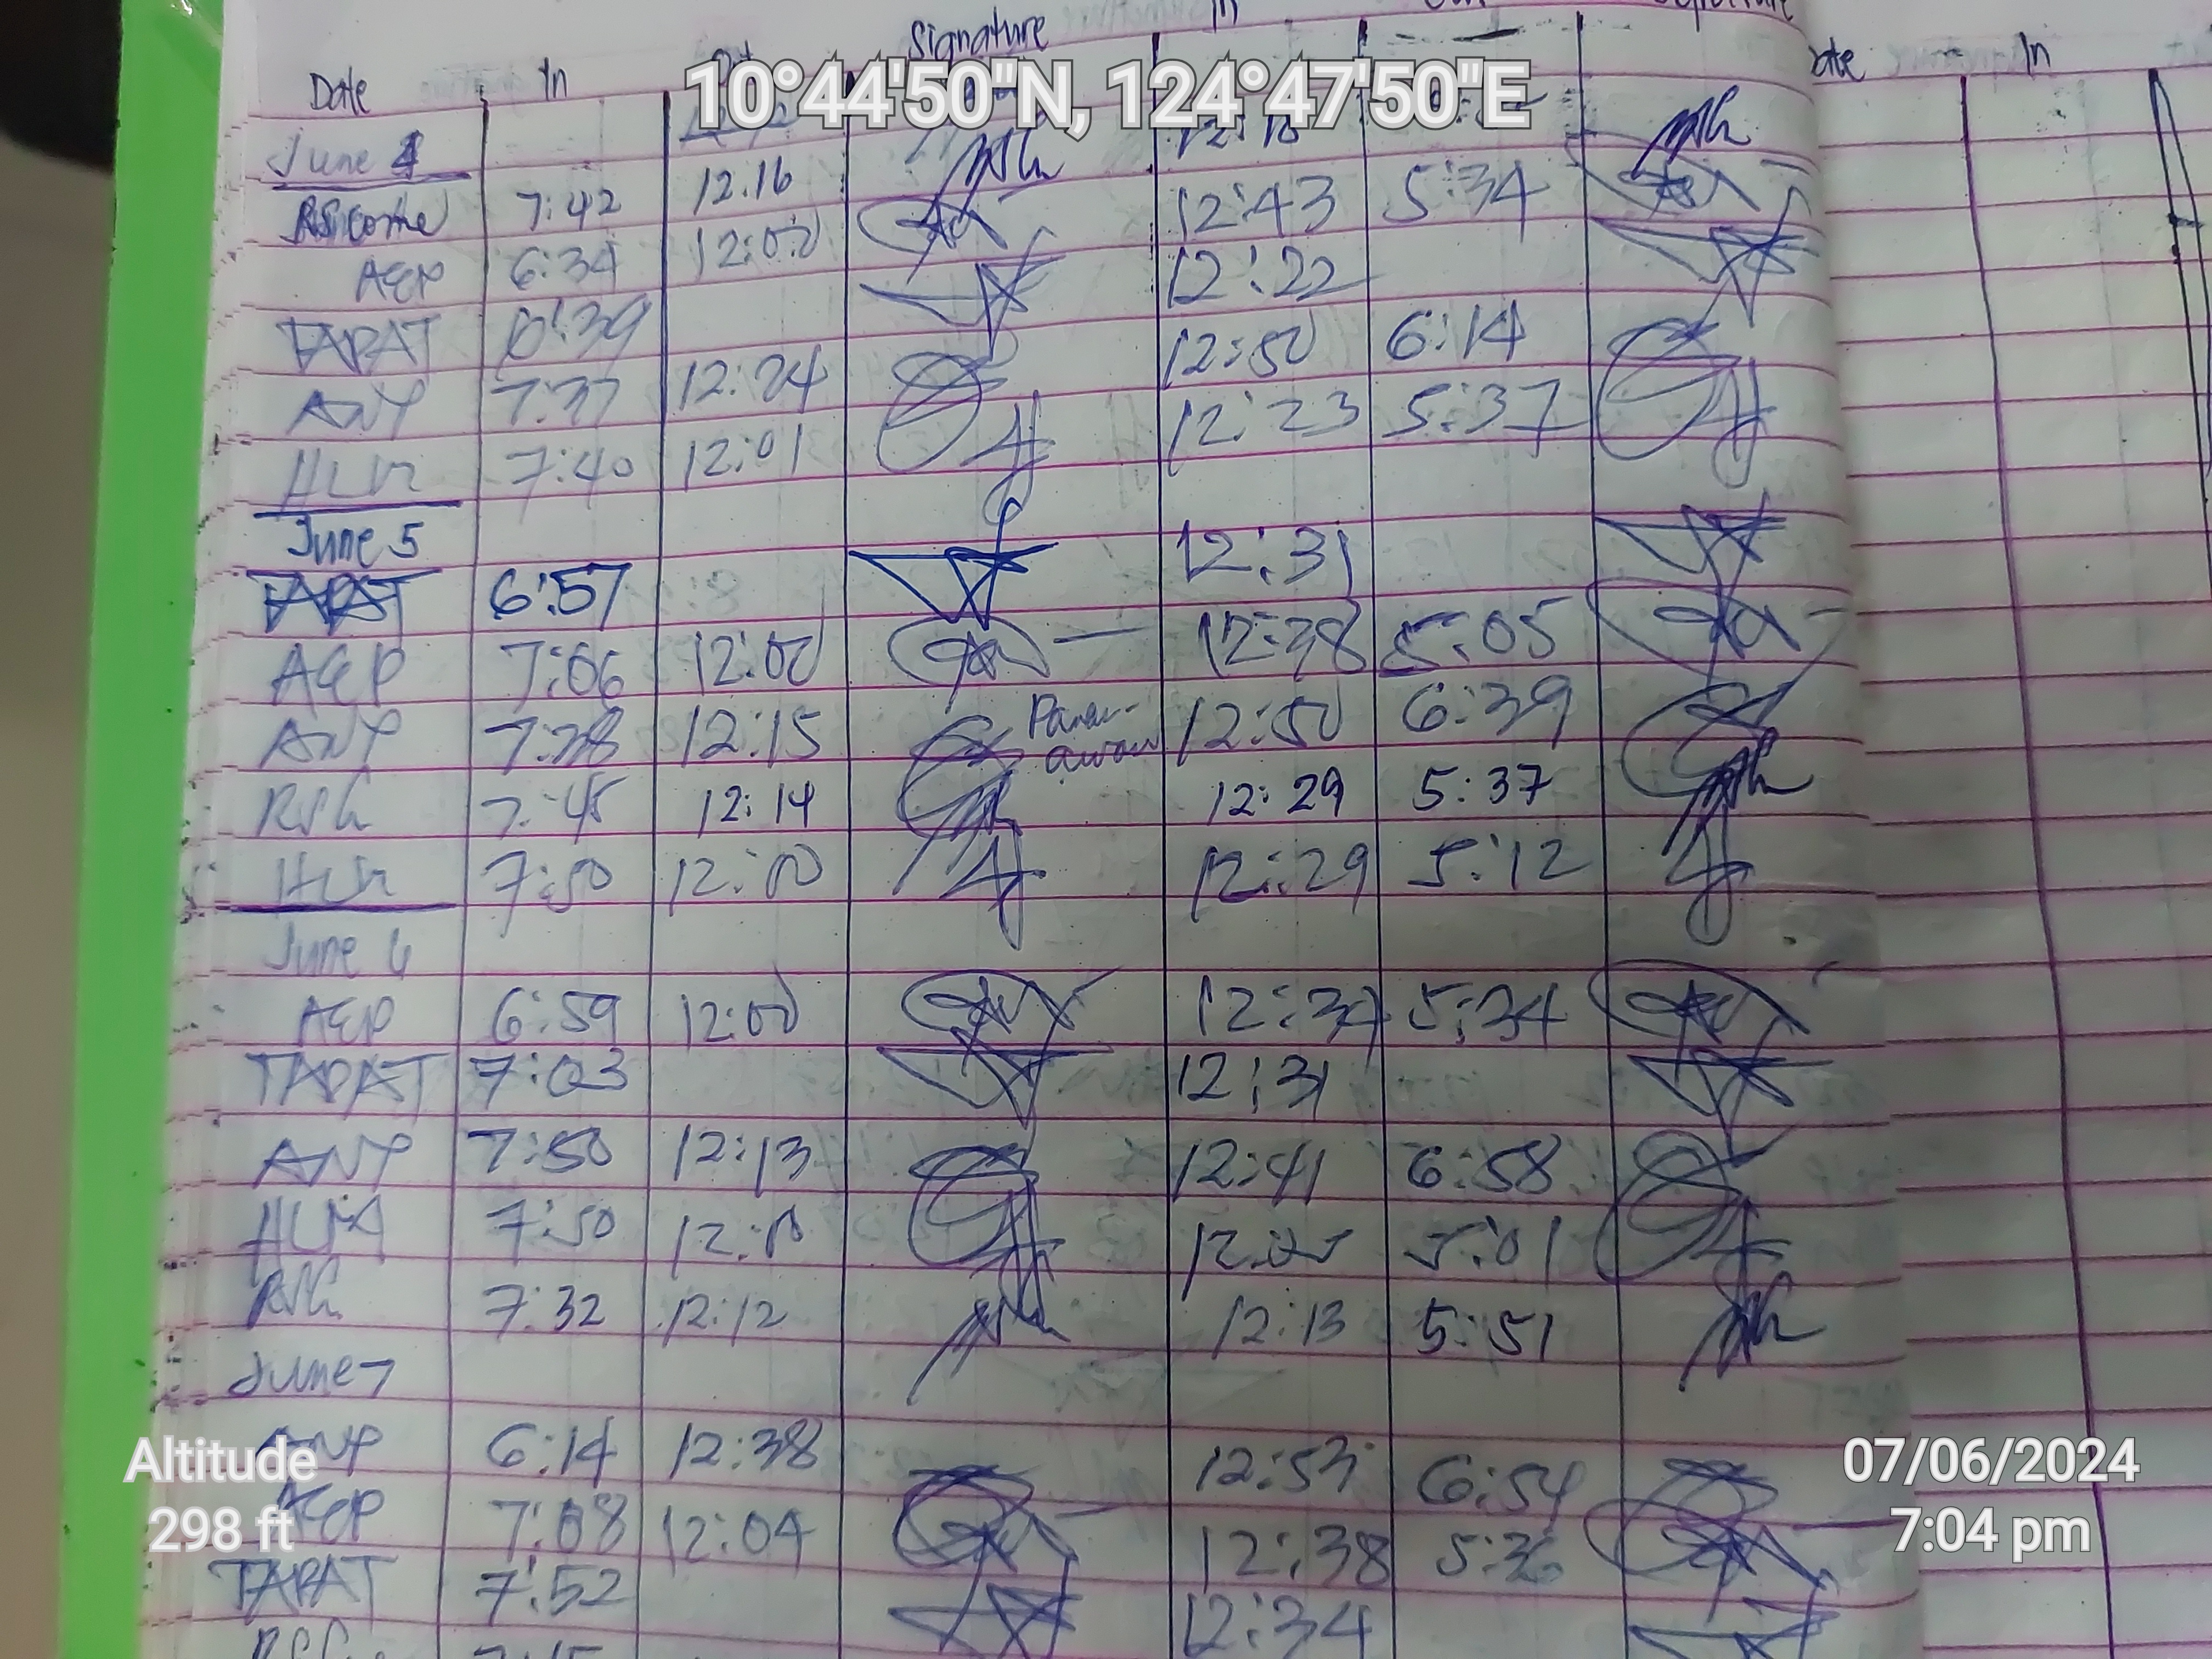 Signature In
Date In Signature
10°44'50"N, 124°47'50"E
ate In
June 4
7:42 12:16 12:43 5:34
AEP 6:34 12:00 12:22
TAPAT 6:39 12:50 6:14
ANP 7:37 12:24 12:23 5:37
7:40 12:01
June 5
TAPAT 6:57 12:31
AEP 7:06 12:00 12:38 5:05
ANP 7:38 12:15 12:50 6:39
7:45 12:14 12:29 5:37
7:50 12:00 12:29 5:12
June 6
AEP 6:59 12:00 5:34
TAPAT 7:03 12:31
ANP 7:50 12:13 12:41 6:58
7:50 5:01
7:32 12:12 12:13 5:51
June 7
ANP 6:14 12:38 12:53 6:54
AEP 7:08 12:04 12:38 5:36
TAPAT 7:52 12:34
Altitude
298 ft
07/06/2024
7:04 pm